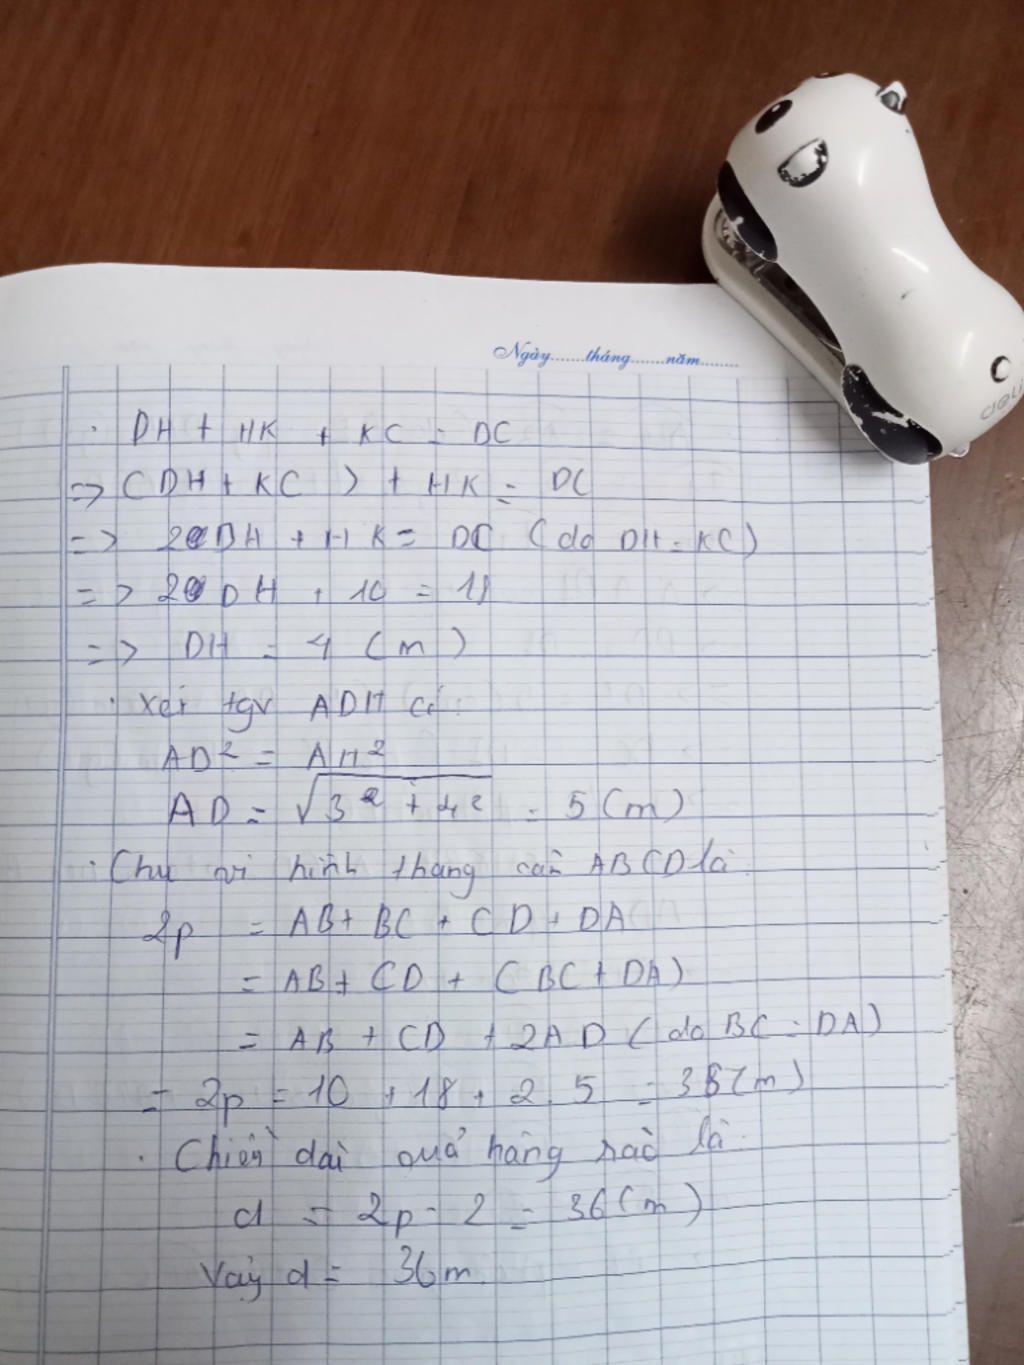 deli
Ngày.......tháng.......năm........
. DH + HK + KC = DC
=> (DH + KC) + HK = DC
=> 2DH + HK = DC (do DH = KC)
=> 2DH + 10 = 18
=> DH = 4 (m)
. Xét tgv ADH có:
AD² = AH²
AD = √3² + 4² = 5 (m)
. Chu vi hình thang cân ABCD là:
2p = AB + BC + CD + DA
= AB + CD + (BC + DA)
= AB + CD + 2AD (do BC = DA)
= 2p = 10 + 18 + 2.5 = 38 (m)
. Chiều dài quả hàng rào là:
d = 2p - 2 = 36 (m)
Vậy d = 36m.